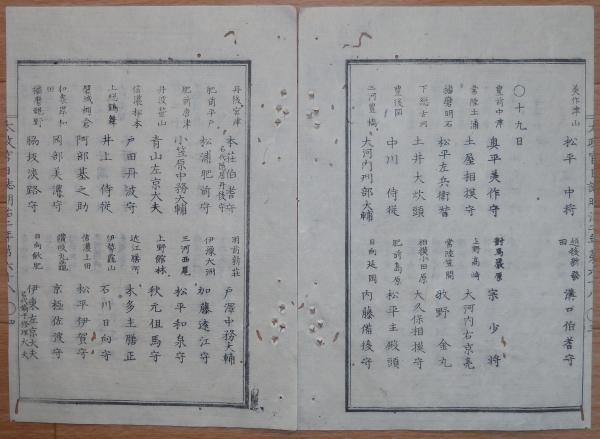 美作津山 松平 中將 越後新發田 溝口伯耆守
〇十九日
豊前中津 奥平美作守 對馬嚴原 宗 少將
常陸土浦 土屋相摸守 上野高崎 大河内右京亮
播磨明石 松平左兵衞督 常陸笠間 牧野 金丸
下総古河 土井大炊頭 相摸小田原 大久保相摸守
豊後岡 中川 侍従 肥前島原 松平主殿頭
三河豊橋 大河内刑部大輔 日向延岡 内藤備後守
丹後宮津 本荘伯耆守 名代隠居丹後守 羽前新莊 戸澤中務大輔
肥前平戸 松浦肥前守 伊豫大洲 加藤遠江守
肥前唐津 小笠原中務大輔 三河西尾 松平和泉守
丹波篠山 青山左京大夫 上野館林 秋元但馬守
信濃松本 戸田丹波守 近江膳所 本多主膳正
上総鶴舞 井上 侍従 伊勢龜山 石川日向守
磐城棚倉 阿部基之助 信濃上田 松平伊賀守
和泉岸和田 岡部美濃守 讃岐丸龜 京極佐渡守
播磨龍野 脇坂淡路守 日向飫肥 伊東左京大夫 名代嫡子修理大夫
太政官日誌明治二年第六十八 〇四